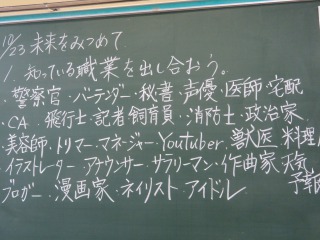 10/23 未来をみつめて
1. 知っている職業を出し合おう。
・警察官・バーテンダー・秘書・声優・医師・宅配
・CA・飛行士・記者・飼育員・消防士・政治家
・美容師・トリマー・マネージャー・Youtuber・獣医・料理人
・イラストレーター・アナウンサー・サラリーマン・作曲家・天気
ブロガー・漫画家・ネイリスト・アイドル 予報